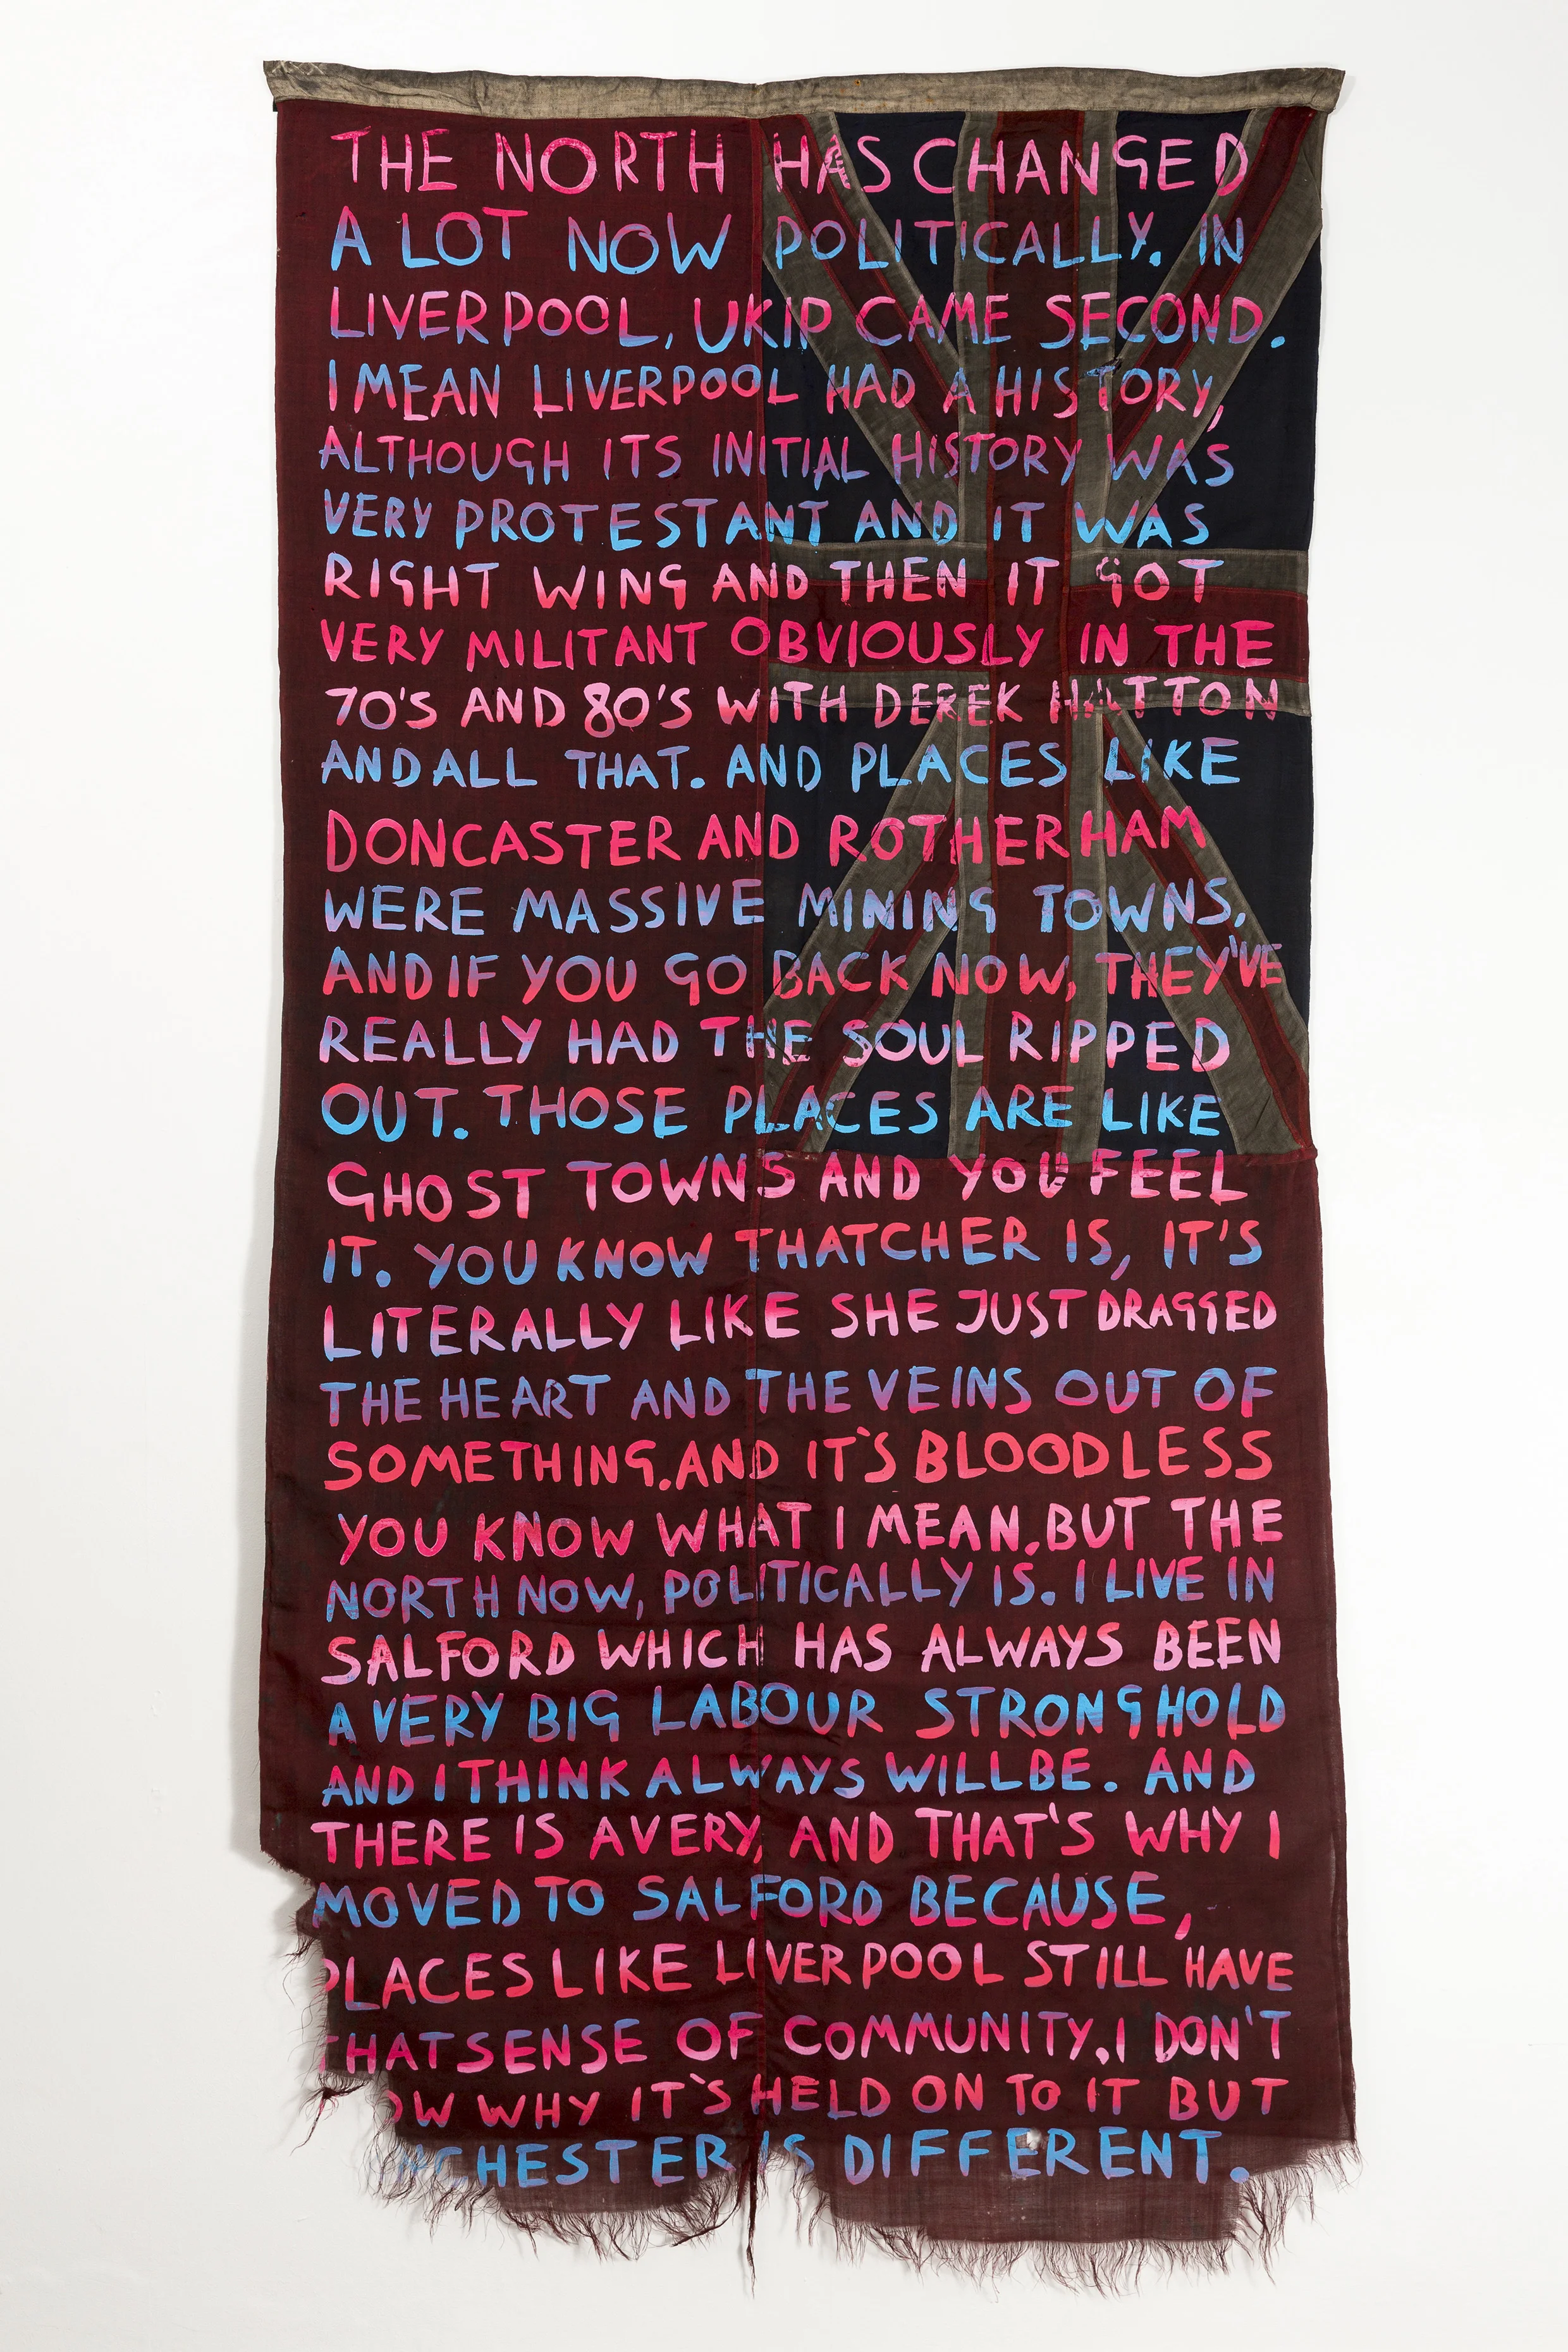 THE NORTH HAS CHANGED
A LOT NOW POLITICALLY. IN
LIVERPOOL, UKIP CAME SECOND.
I MEAN LIVERPOOL HAD A HISTORY,
ALTHOUGH ITS INITIAL HISTORY WAS
VERY PROTESTANT AND IT WAS
RIGHT WING AND THEN IT GOT
VERY MILITANT OBVIOUSLY IN THE
70'S AND 80'S WITH DEREK HATTON
AND ALL THAT. AND PLACES LIKE
DONCASTER AND ROTHERHAM
WERE MASSIVE MINING TOWNS.
AND IF YOU GO BACK NOW, THEY'VE
REALLY HAD THE SOUL RIPPED
OUT. THOSE PLACES ARE LIKE
GHOST TOWNS AND YOU FEEL
IT. YOU KNOW THATCHER IS, IT'S
LITERALLY LIKE SHE JUST DRAGGED
THE HEART AND THE VEINS OUT OF
SOMETHING. AND IT'S BLOODLESS
YOU KNOW WHAT I MEAN. BUT THE
NORTH NOW, POLITICALLY IS. I LIVE IN
SALFORD WHICH HAS ALWAYS BEEN
A VERY BIG LABOUR STRONGHOLD
AND I THINK ALWAYS WILL BE. AND
THERE IS A VERY, AND THAT'S WHY I
MOVED TO SALFORD BECAUSE,
PLACES LIKE LIVERPOOL STILL HAVE
THAT SENSE OF COMMUNITY. I DON'T
OW WHY IT'S HELD ON TO IT BUT
NCHESTER IS DIFFERENT.